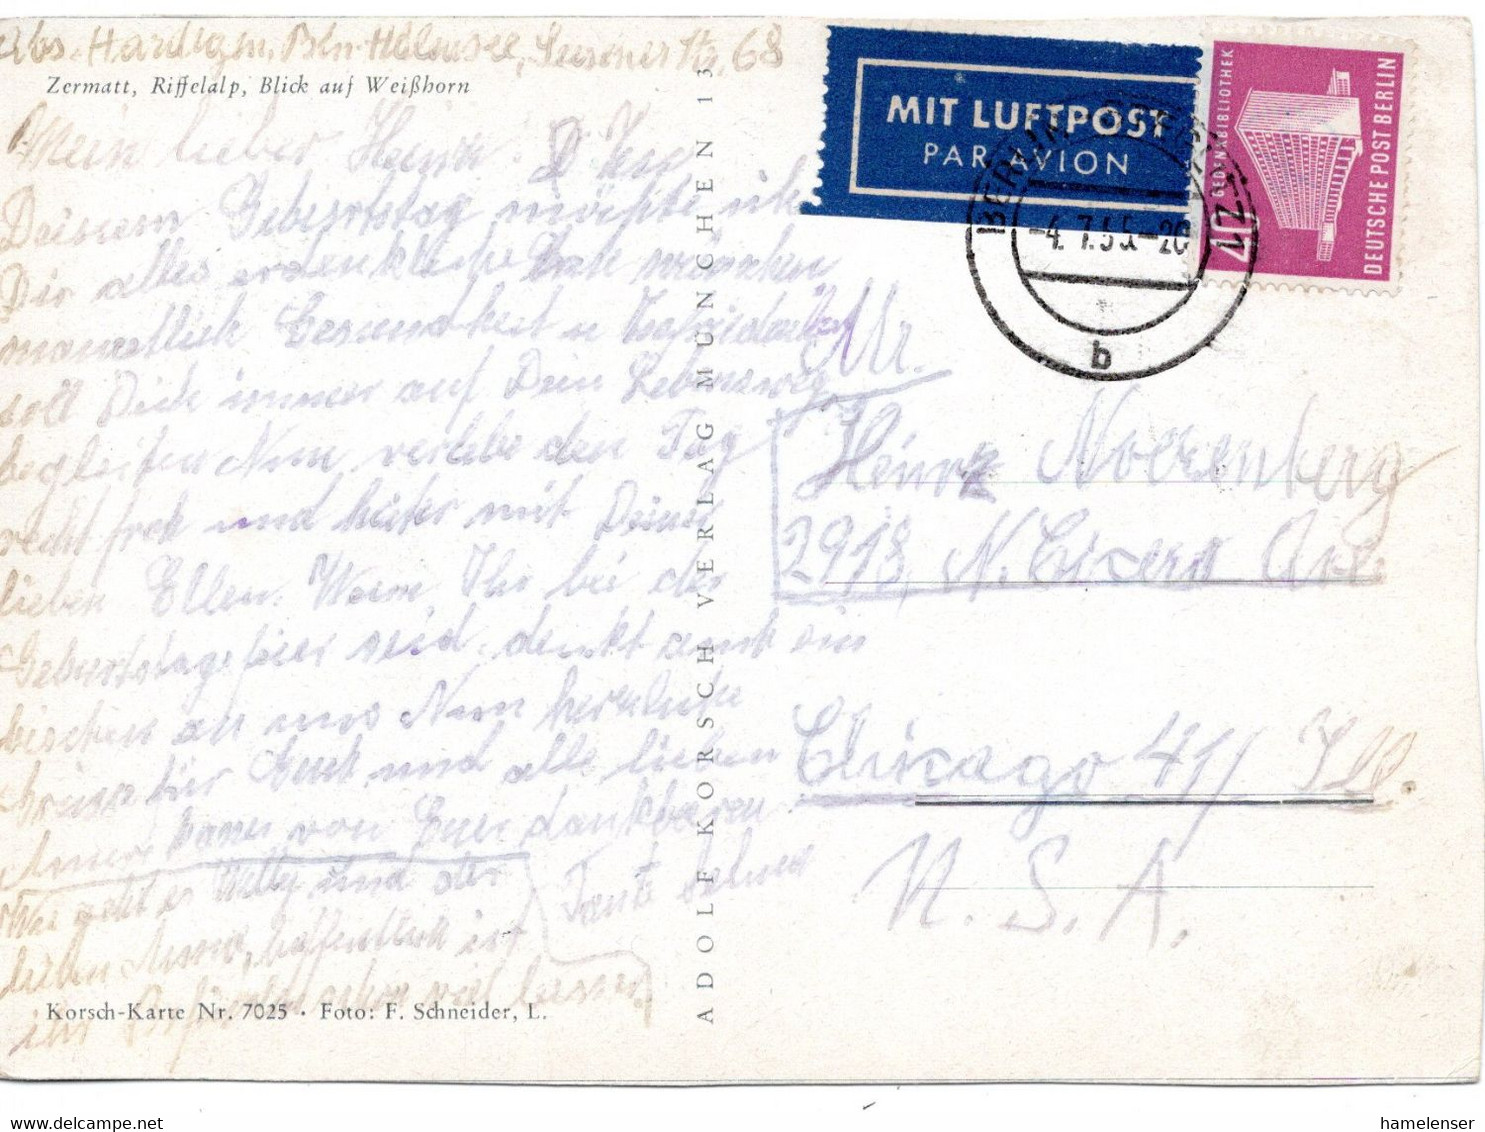 Abs. Hardigan, Bln-Halensee, Str. 68
Zermatt, Riffelalp, Blick auf Weißhorn
MIT LUFTPOST
PAR AVION
BERLIN
-4. 7.55.-20
21
b
GEDENKBIBLIOTHEK
40
DEUTSCHE POST BERLIN
Mein lieber Heinz Zu
Deinem Geburtstag möchte ich
Dir alles erdenklich Gute wünschen
namentlich Gesundheit u Zufriedenheit
soll Dich immer auf Dein Lebensweg
begleiten Nun verlebe den Tag
recht froh und heiter mit Deiner
lieben Ellen. Wenn Ihr bei der
Geburtstagsfeier seid, denkt auch ein
bischen an uns Nun herzliche
Grüsse für Euch und alle lieben
von Eurer dankbaren
Tante
Was geht es Willy und der
lieben, hoffentlich ist
ihr schon viel besser
Mr.
Heinz Noerenberg
2918, N. Cicero Ave
Chicago 41/ Ill.
U.S.A.
ADOLF KORSCH VERLAG MÜNCHEN 13
Korsch-Karte Nr. 7025 · Foto: F. Schneider, L.
hamelenser